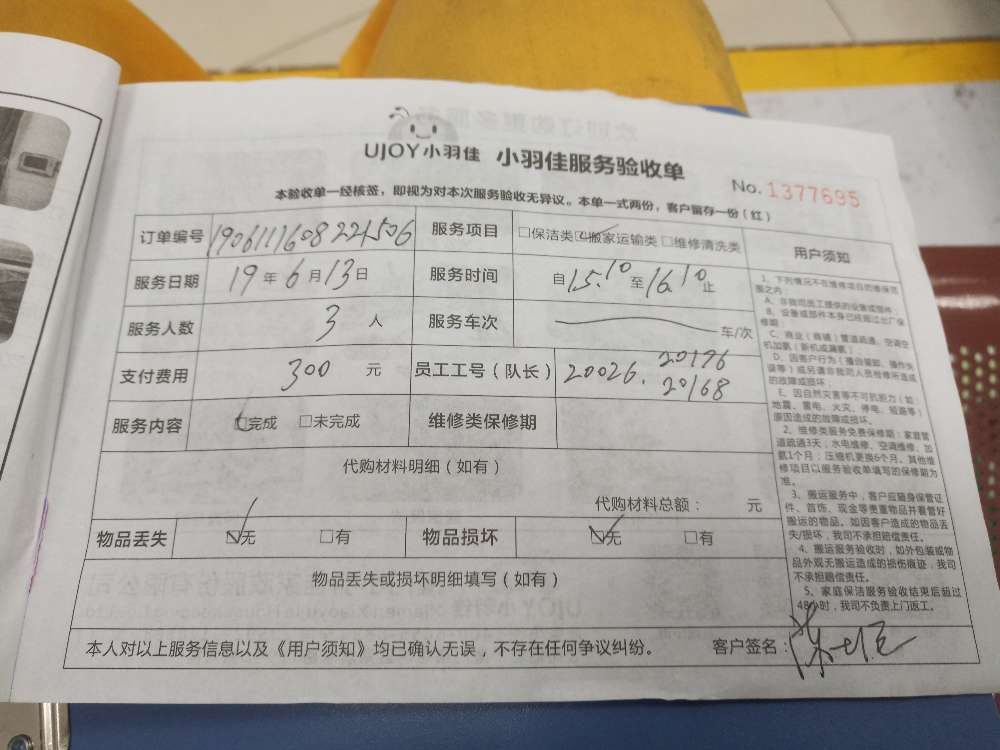 UJOY小羽佳 小羽佳服务验收单
No. 1377695
本验收单一经核签，即视为对本次服务验收无异议。本单一式两份，客户留存一份（红）
订单编号 1906111608221506 服务项目 □保洁类 ☑搬家运输类 □维修清洗类
服务日期 19年6月13日 服务时间 自15.10至16.10止
服务人数 3人 服务车次 车/次
支付费用 300元 员工工号（队长） 20026. 20196 20168
服务内容 ☑完成 □未完成 维修类保修期
代购材料明细（如有）
代购材料总额： 元
物品丢失 ☑无 □有 物品损坏 ☑无 □有
物品丢失或损坏明细填写（如有）
本人对以上服务信息以及《用户须知》均已确认无误，不存在任何争议纠纷。 客户签名：
用户须知
1、下列情况不在维修项目的维保范
围之内：
A、非我司员工提供的设备或部件；
B、设备或部件本身已经超过出厂保
修期；
C、商业（商铺）管道疏通、空调空
机加氨（新机或漏氨）
D、因客户行为（擅自装卸、操作失
误等）或另请非我司人员检修所造成
的故障或损坏；
E、因自然灾害等不可抗拒力（如：
地震、雷电、火灾、停电、短路等）
原因造成的故障或损坏。
2、维修类服务免费保修期：家庭管
道疏通3天；水电维修、空调维修、加
氨1个月；压缩机更换6个月。其他维
修项目以服务验收单填写的保修期为
准。
3、搬运服务中，客户应随身保管证
件、首饰、现金等贵重物品并看管好
搬运的物品。如因客户造成的物品丢
失/损坏，我司不承担赔偿责任。
4、搬运服务验收时，如外包装或物
品外观无搬运造成的损伤痕迹，我司
不承担赔偿责任。
5、家庭保洁服务验收结束后超过
48小时，我司不负责上门返工。